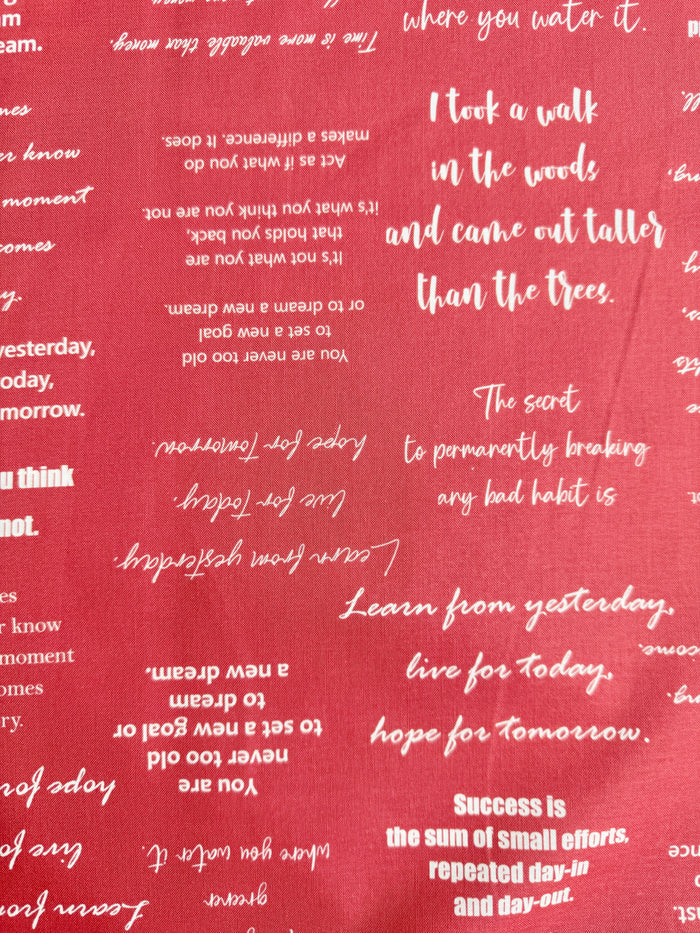 am
eam.
Time is more valuable than money.
where you water it.
mes
er know
moment
comes
y.
I took a walk
in the woods
and came out taller
than the trees.
Act as if what you do
makes a difference. It does.
It's not what you are
that holds you back,
it's what you think you are not.
You are never too old
to set a new goal
or to dream a new dream.
yesterday,
oday,
morrow.
u think
not.
The secret
to permanently breaking
any bad habit is
Learn from yesterday.
live for today.
hope for tomorrow.
Learn from yesterday,
live for today,
hope for tomorrow.
es
r know
moment
omes
ry.
You are
never too old
to set a new goal or
to dream
a new dream.
Success is
the sum of small efforts,
repeated day-in
and day-out.
Learn from
live for
hope for
greener
where you water it.